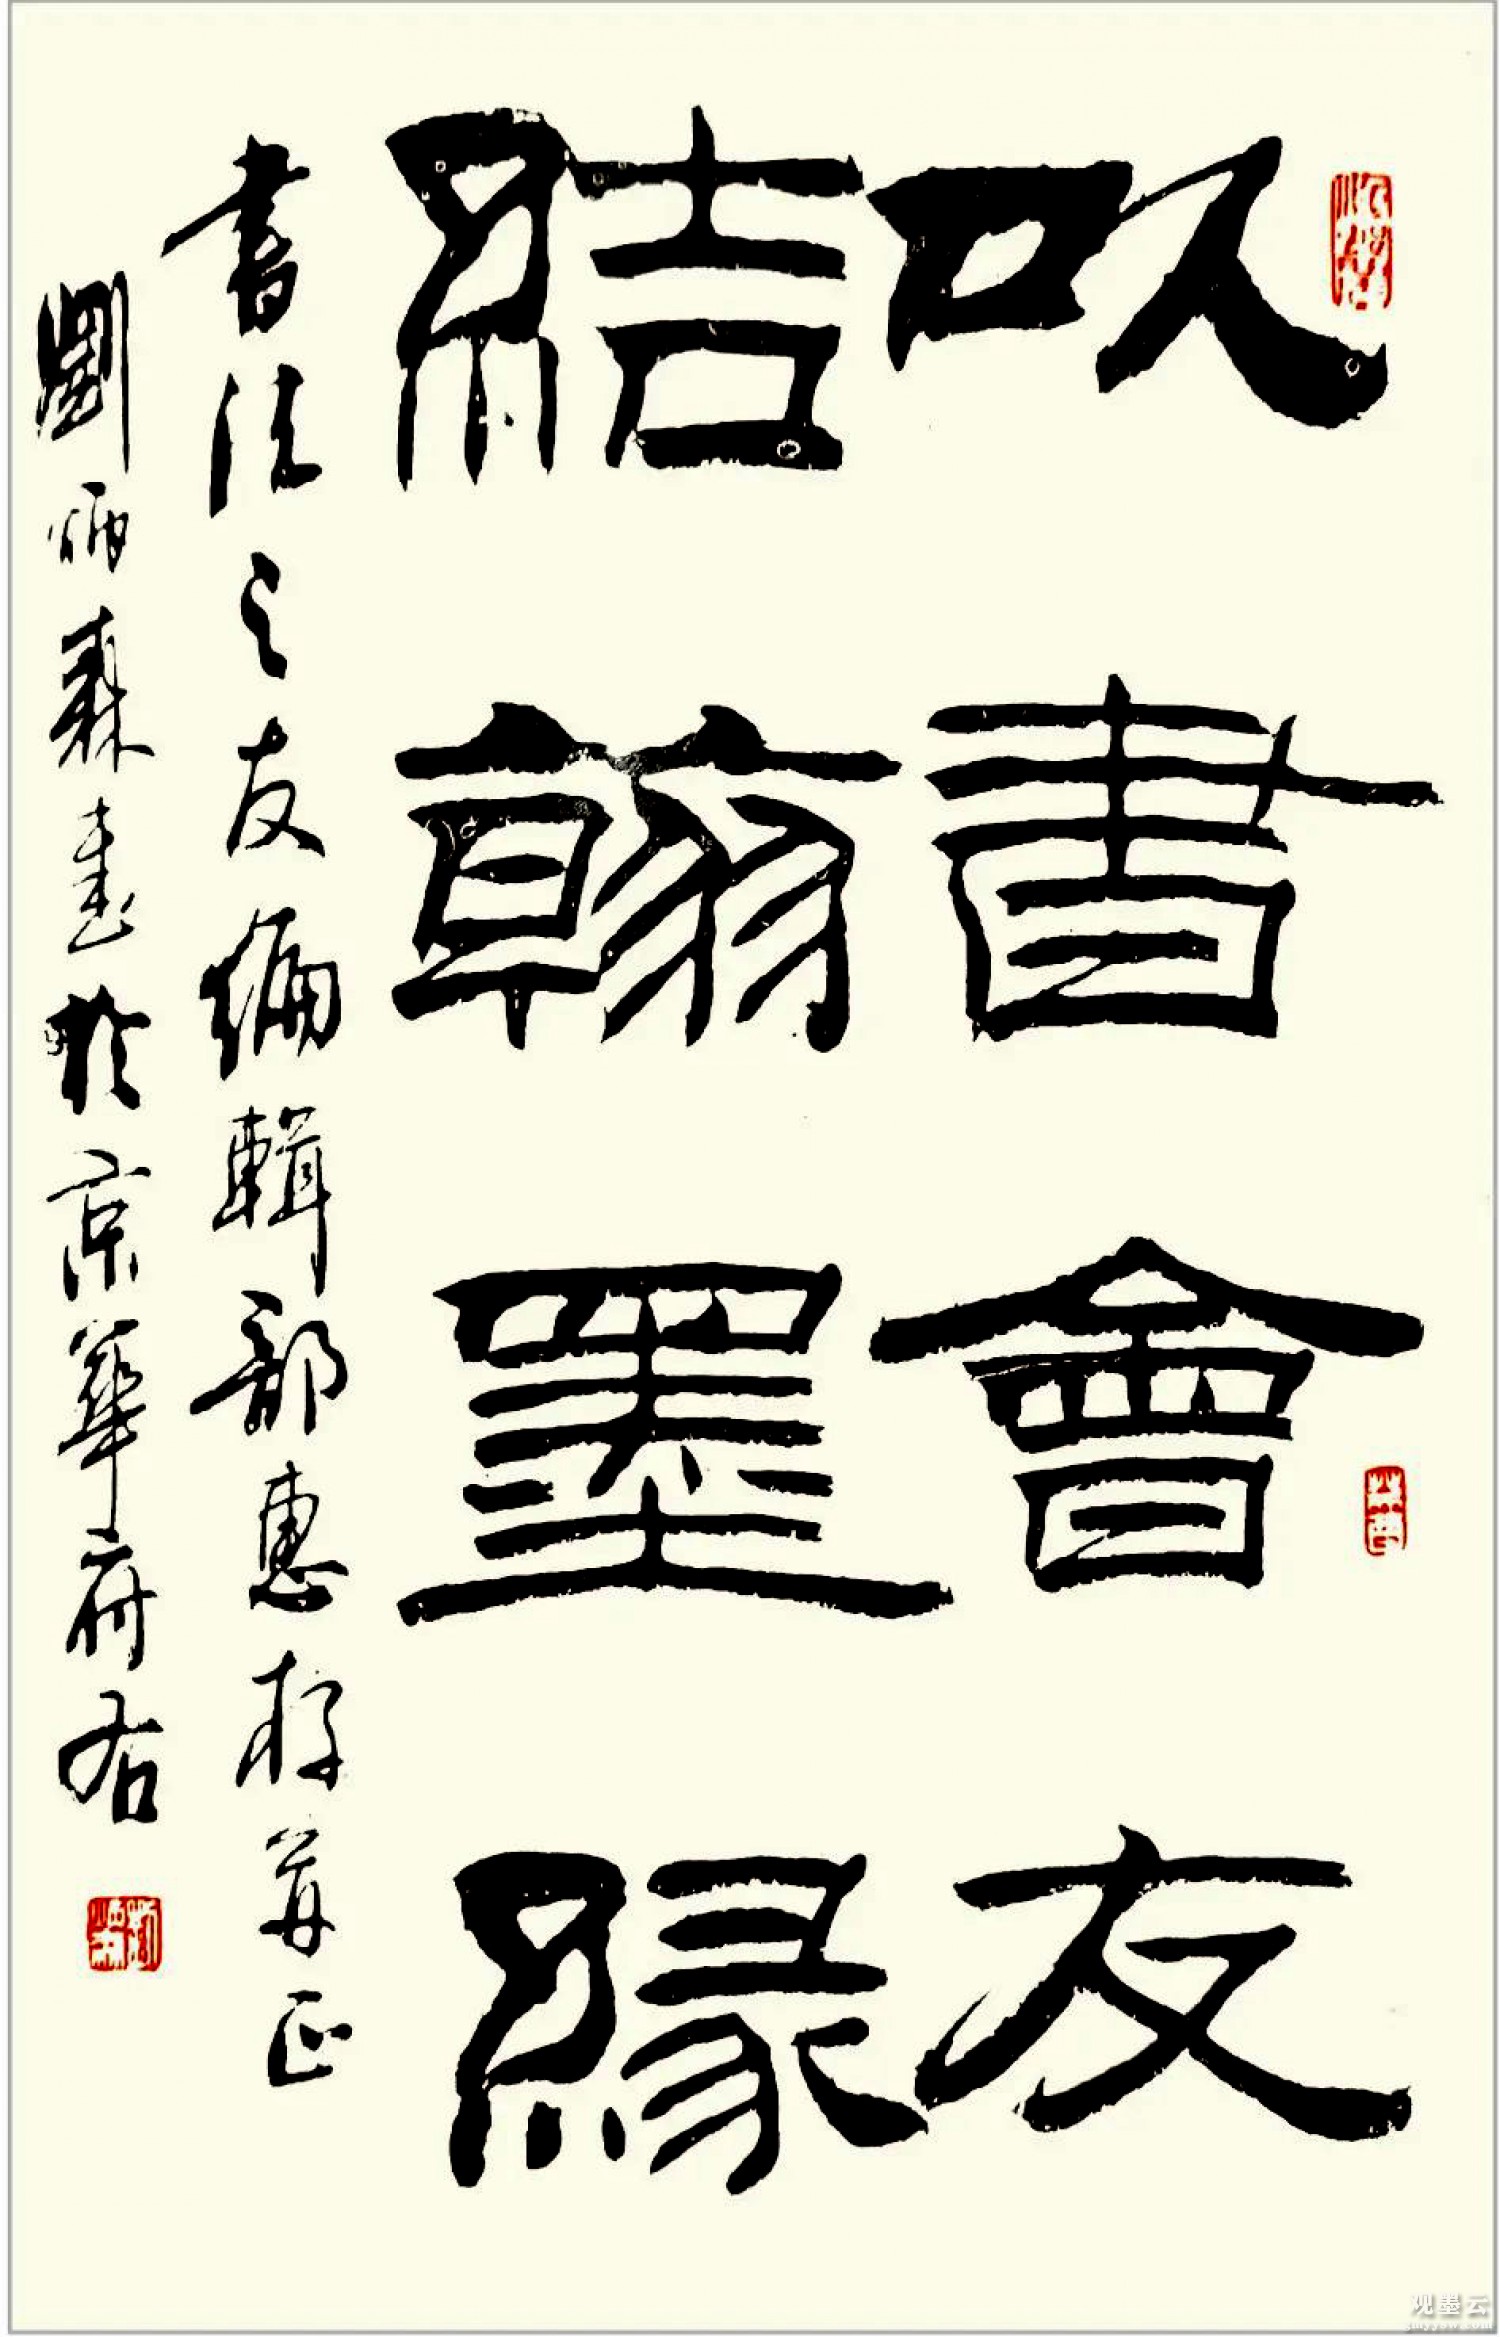 以書會友
結翰墨緣
書法之友编輯部惠存并正
劉炳森書於京華府右
观墨云